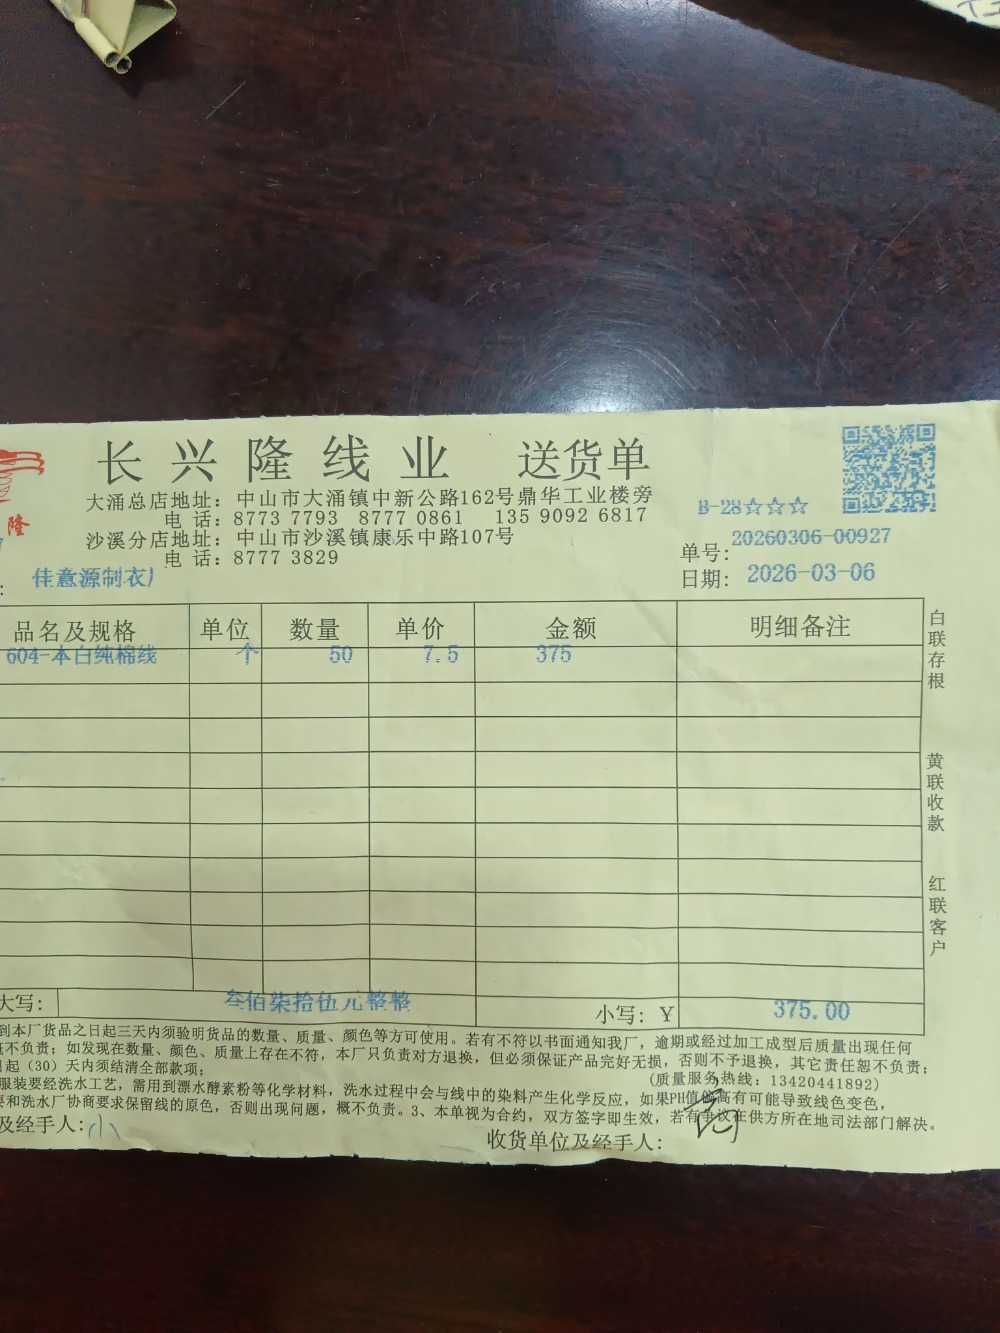 长兴隆线业 送货单
隆
大涌总店地址：中山市大涌镇中新公路162号鼎华工业楼旁
电 话：8773 7793 8777 0861 135 9092 6817
沙溪分店地址：中山市沙溪镇康乐中路107号
电 话：8777 3829
B-28☆☆☆
单号：20260306-00927
日期：2026-03-06
佳意源制衣厂
品名及规格 单位 数量 单价 金额 明细备注
604-本白纯棉线 个 50 7.5 375
白联存根
黄联收款
红联客户
大写： 叁佰柒拾伍元整整 小写：Y 375.00
到本厂货品之日起三天内须验明货品的数量、质量、颜色等方可使用。若有不符以书面通知我厂，逾期或经过加工成型后质量出现任何
概不负责；如发现在数量、颜色、质量上存在不符，本厂只负责对方退换，但必须保证产品完好无损，否则不予退换，其它责任恕不负责；
起（30）天内须结清全部款项；
(质量服务热线：13420441892)
服装要经洗水工艺，需用到漂水酵素粉等化学材料，洗水过程中会与线中的染料产生化学反应，如果PH值偏高有可能导致线色变色，
要和洗水厂协商要求保留线的原色，否则出现问题，概不负责。3、本单视为合约，双方签字即生效，若有争议在供方所在地司法部门解决。
及经手人：小
收货单位及经手人：